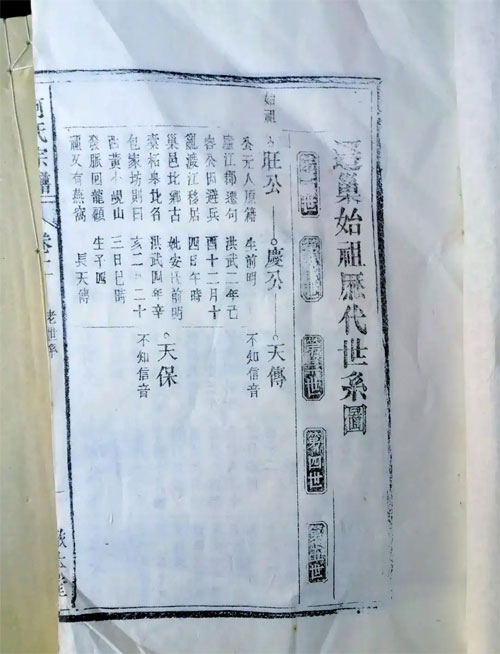 遷巢始祖歷代世系圖
第一世
第二世
第三世
第四世
第五世
始祖
旺公
公元人原籍
廬江郡遷句
容公因避兵
亂渡江移居
巢邑北鄉古
橐柘皋北名
包家坊則曰
西黃小峴山
發脈回龍顧
祖又有燕窩
慶公
生前明
洪武二年己
酉十二月十
四日午時
妣安氏前明
洪武四年辛
亥二月二十
三日巳時
生子四
長天傳
天傳
不知信音
天保
不知信音
何氏宗譜
老世系